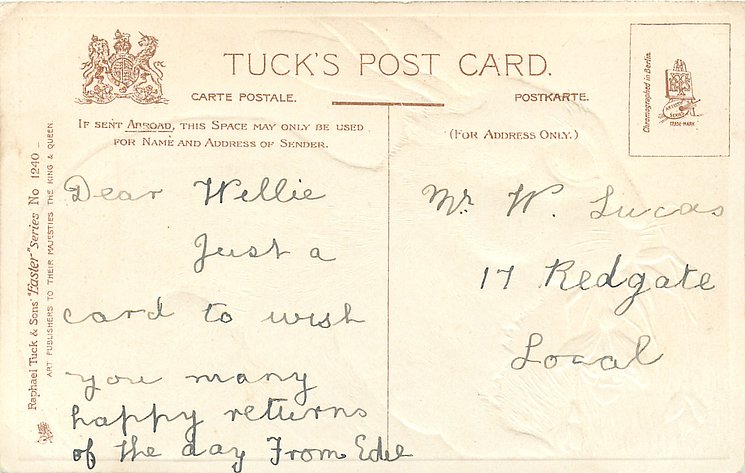 TUCK'S POST CARD.
CARTE POSTALE.
POSTKARTE.
IF SENT ABROAD, THIS SPACE MAY ONLY BE USED
FOR NAME AND ADDRESS OF SENDER.
(FOR ADDRESS ONLY.)
Chromographed in Berlin.
TRADE-MARK
Raphael Tuck & Sons' "Easter" Series No 1240
ART PUBLISHERS TO THEIR MAJESTIES THE KING & QUEEN.
Dear Willie
Just a
card to wish
you many
happy returns
of the day From
Mr. W. Lucas
17 Redgate
Local